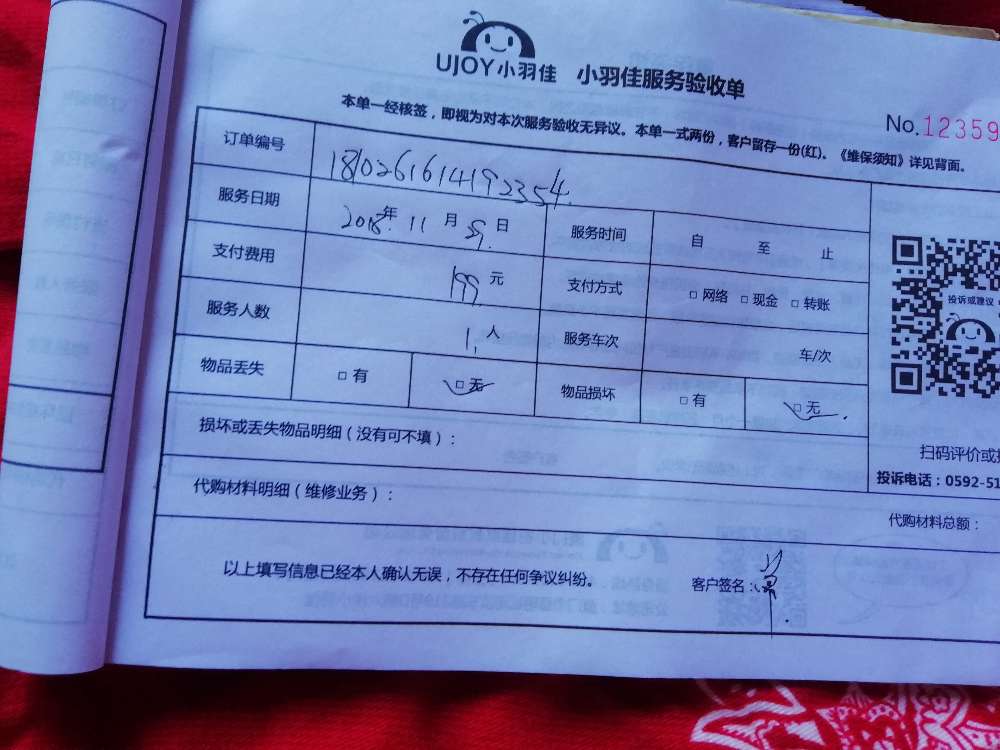 UJOY小羽佳 小羽佳服务验收单
本单一经核签，即视为对本次服务验收无异议。本单一式两份，客户留存一份(红)。《维保须知》详见背面。
No.12359
订单编号 1810261614192354
服务日期 2018年 11月 9日 服务时间 自 至 止
支付费用 199元 支付方式 □ 网络 □ 现金 □ 转账
服务人数 1人 服务车次 车/次
物品丢失 □ 有 □ 无 物品损坏 □ 有 □ 无
投诉或建议
损坏或丢失物品明细（没有可不填）：
扫码评价或
投诉电话：0592-51
代购材料明细（维修业务）：
代购材料总额：
以上填写信息已经本人确认无误，不存在任何争议纠纷。 客户签名：